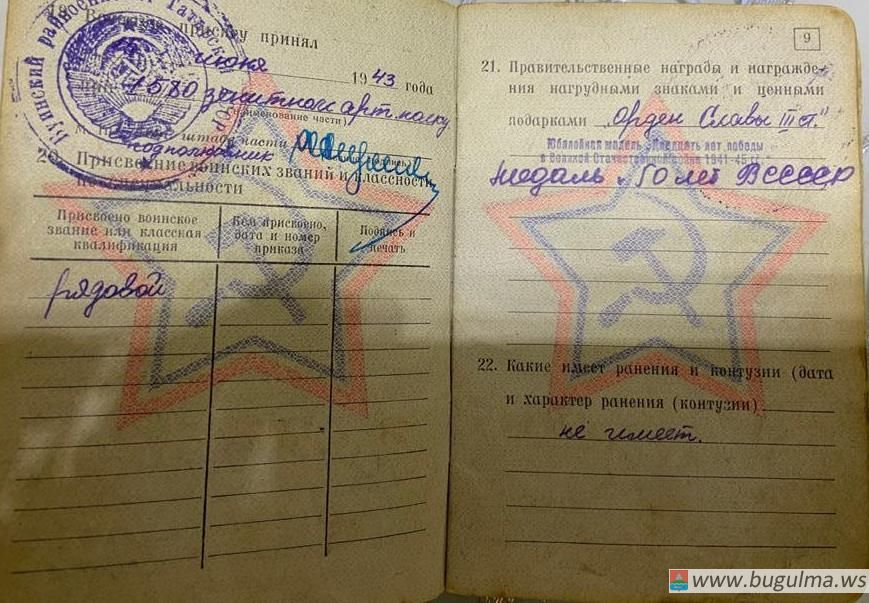 Буинский
присягу принял
июня 1943 года
1580 зенитном арт. полку
(наименование части)
штаба части
подполковник
20. Присвоение воинских званий и классности
по специальности
Присвоено воинское звание или классная квалификация
Кем присвоено, дата и номер приказа
Подпись и печать
рядовой
9
21. Правительственные награды и награжде-
ния нагрудными знаками и ценными
подарками „Орден Славы III ст."
Юбилейная медаль „Тридцать лет победы
в Великой Отечественной войне 1941-45 г.г.
медаль „50 лет ВСССР
22. Какие имеет ранения и контузии (дата
и характер ранения (контузии)
не имеет.
www.bugulma.ws